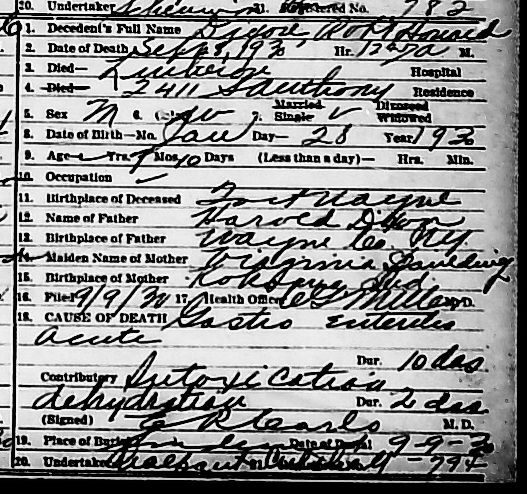 20. Undertaker Registered No. 782
1. Decedent's Full Name Dixon, Robt Howard
2. Date of Death Sept 8, 1930 Hr. M.
3. Died— Lutheran Hospital
4. Died— 2411 S Anthony Residence
5. Sex M 6. W 7. Married Single Divorced Widowed
8. Date of Birth—Mo. Jan Day— 28 Year 1930
9. Age— Yrs. 7 Mos. 10 Days (Less than a day)— Hrs. Min.
10. Occupation
11. Birthplace of Deceased Fort Wayne
12. Name of Father Harold Dixon
13. Birthplace of Father Wayne Co. Ky
Maiden Name of Mother Virginia Spaulding
15. Birthplace of Mother Kokomo, Ind
16. Filed 9/9/30 17. Health Officer M.D.
18. CAUSE OF DEATH Gastro Enteritis
acute
Dur. 10 das
Contributory Intoxication
dehydration Dur. 2 das
(Signed) E R Carlo M. D.
19. Place of Burial Lindenwood Date of Burial 9-9-30
20. Undertaker 794